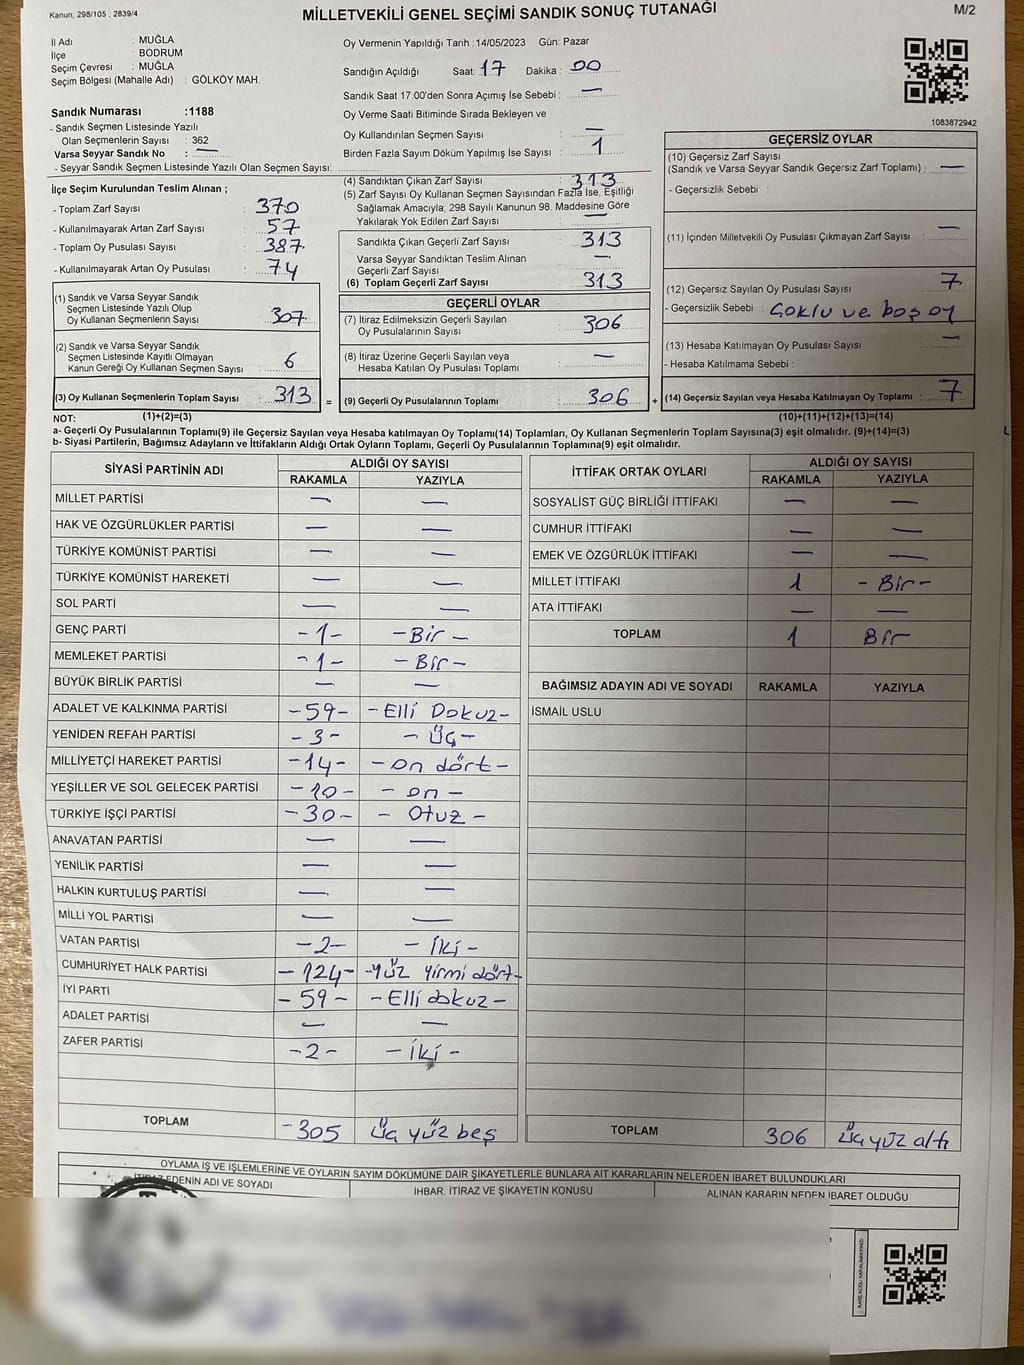 Kanun; 298/105 , 2839/4
MİLLETVEKİLİ GENEL SEÇİMİ SANDIK SONUÇ TUTANAĞI
M/2
İl Adı : MUĞLA
İlçe : BODRUM
Seçim Çevresi : MUĞLA
Seçim Bölgesi (Mahalle Adı) : GÖLKÖY MAH.
Sandık Numarası :1188
- Sandık Seçmen Listesinde Yazılı
Olan Seçmenlerin Sayısı : 362
Varsa Seyyar Sandık No : —
- Seyyar Sandık Seçmen Listesinde Yazılı Olan Seçmen Sayısı:
Oy Vermenin Yapıldığı Tarih :14/05/2023 Gün: Pazar
Sandığın Açıldığı Saat: 17 Dakika : 00
Sandık Saat 17:00'den Sonra Açımış İse Sebebi : —
Oy Verme Saati Bitiminde Sırada Bekleyen ve
Oy Kullandırılan Seçmen Sayısı : —
Birden Fazla Sayım Döküm Yapılmış İse Sayısı : 1
1083872942
İlçe Seçim Kurulundan Teslim Alınan ;
- Toplam Zarf Sayısı : 370
- Kullanılmayarak Artan Zarf Sayısı : 57
- Toplam Oy Pusulası Sayısı : 387
- Kullanılmayarak Artan Oy Pusulası : 74
(1) Sandık ve Varsa Seyyar Sandık
Seçmen Listesinde Yazılı Olup
Oy Kullanan Seçmenlerin Sayısı : 307
(2) Sandık ve Varsa Seyyar Sandık
Seçmen Listesinde Kayıtlı Olmayan
Kanun Gereği Oy Kullanan Seçmen Sayısı : 6
(3) Oy Kullanan Seçmenlerin Toplam Sayısı : 313 =
(1)+(2)=(3)
(4) Sandıktan Çıkan Zarf Sayısı : 313
(5) Zarf Sayısı Oy Kullanan Seçmen Sayısından Fazla İse, Eşitliği
Sağlamak Amacıyla; 298 Sayılı Kanunun 98. Maddesine Göre
Yakılarak Yok Edilen Zarf Sayısı : —
Sandıkta Çıkan Geçerli Zarf Sayısı : 313
Varsa Seyyar Sandıktan Teslim Alınan
Geçerli Zarf Sayısı : —
(6) Toplam Geçerli Zarf Sayısı : 313
GEÇERLİ OYLAR
(7) İtiraz Edilmeksizin Geçerli Sayılan
Oy Pusulalarının Sayısı : 306
(8) İtiraz Üzerine Geçerli Sayılan veya
Hesaba Katılan Oy Pusulası Toplamı : —
(9) Geçerli Oy Pusulalarının Toplamı : 306 +
GEÇERSİZ OYLAR
(10) Geçersiz Zarf Sayısı
(Sandık ve Varsa Seyyar Sandık Geçersiz Zarf Toplamı) : —
- Geçersizlik Sebebi :
(11) İçinden Milletvekili Oy Pusulası Çıkmayan Zarf Sayısı : —
(12) Geçersiz Sayılan Oy Pusulası Sayısı : 7
- Geçersizlik Sebebi : Çoklu ve boş oy
(13) Hesaba Katılmayan Oy Pusulası Sayısı : —
- Hesaba Katılmama Sebebi :
(14) Geçersiz Sayılan veya Hesaba Katılmayan Oy Toplamı : 7
(10)+(11)+(12)+(13)=(14)
NOT:
a- Geçerli Oy Pusulalarının Toplamı(9) ile Geçersiz Sayılan veya Hesaba katılmayan Oy Toplamı(14) Toplamları, Oy Kullanan Seçmenlerin Toplam Sayısına(3) eşit olmalıdır. (9)+(14)=(3)
b- Siyasi Partilerin, Bağımsız Adayların ve İttifakların Aldığı Ortak Oyların Toplamı, Geçerli Oy Pusulalarının Toplamına(9) eşit olmalıdır.
SİYASİ PARTİNİN ADI
ALDIĞI OY SAYISI
RAKAMLA YAZIYLA
MİLLET PARTİSİ — —
HAK VE ÖZGÜRLÜKLER PARTİSİ — —
TÜRKİYE KOMÜNİST PARTİSİ — —
TÜRKİYE KOMÜNİST HAREKETİ — —
SOL PARTİ — —
GENÇ PARTİ -1- -Bir-
MEMLEKET PARTİSİ -1- -Bir-
BÜYÜK BİRLİK PARTİSİ — —
ADALET VE KALKINMA PARTİSİ -59- -Elli Dokuz-
YENİDEN REFAH PARTİSİ -3- -Üç-
MİLLİYETÇİ HAREKET PARTİSİ -14- -on dört-
YEŞİLLER VE SOL GELECEK PARTİSİ -10- -on-
TÜRKİYE İŞÇİ PARTİSİ -30- - Otuz -
ANAVATAN PARTİSİ — —
YENİLİK PARTİSİ — —
HALKIN KURTULUŞ PARTİSİ — —
MİLLİ YOL PARTİSİ — —
VATAN PARTİSİ -2- -İki-
CUMHURİYET HALK PARTİSİ -124- -yüz yirmi dört-
İYİ PARTİ -59- -Elli dokuz-
ADALET PARTİSİ — —
ZAFER PARTİSİ -2- -İki-
TOPLAM -305 üç yüz beş
İTTİFAK ORTAK OYLARI
ALDIĞI OY SAYISI
RAKAMLA YAZIYLA
SOSYALİST GÜÇ BİRLİĞİ İTTİFAKI — —
CUMHUR İTTİFAKI — —
EMEK VE ÖZGÜRLÜK İTTİFAKI — —
MİLLET İTTİFAKI 1 -Bir-
ATA İTTİFAKI — —
TOPLAM 1 Bir
BAĞIMSIZ ADAYIN ADI VE SOYADI RAKAMLA YAZIYLA
İSMAİL USLU
TOPLAM 306 üç yüz altı
OYLAMA İŞ VE İŞLEMLERİNE VE OYLARIN SAYIM DÖKÜMÜNE DAİR ŞİKAYETLERLE BUNLARA AİT KARARLARIN NELERDEN İBARET BULUNDUKLARI
EDENİN ADI VE SOYADI
İHBAR, İTİRAZ VE ŞİKAYETİN KONUSU
ALINAN KARARIN NEDEN İBARET OLDUĞU